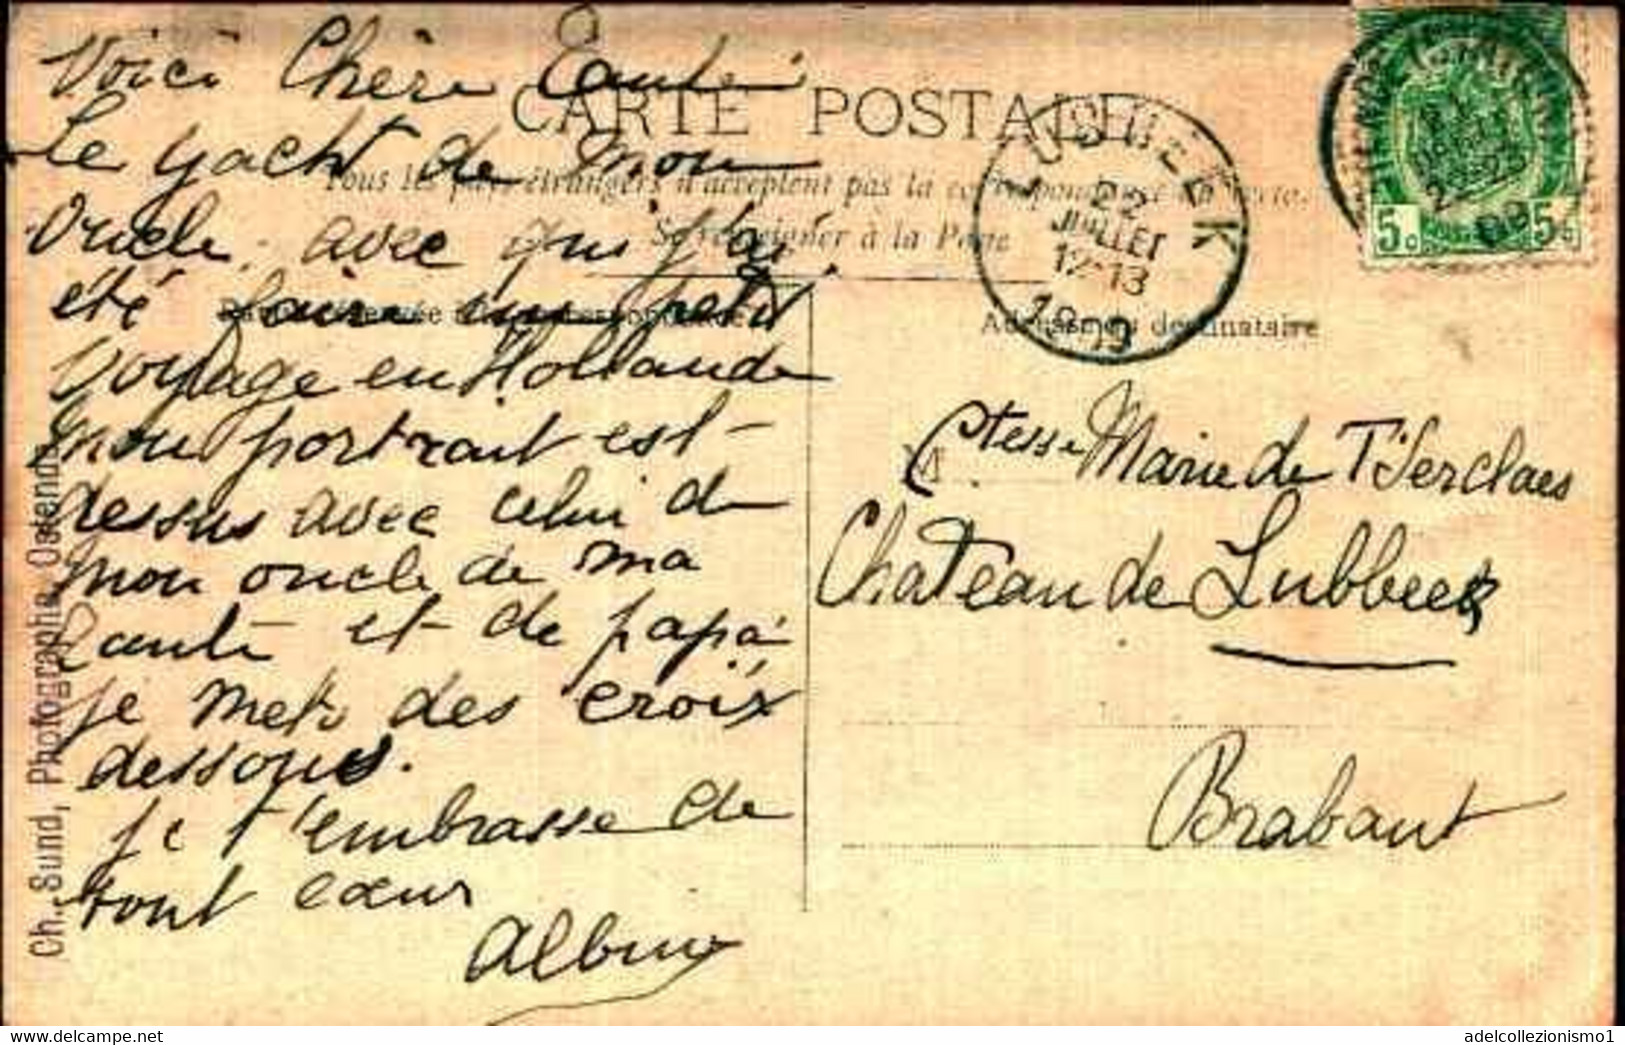 Voici Chère Tante
le yacht de mon
oncle avec qui j'ai
été faire un petit
voyage en Hollande
mon portrait est
dessus avec celui de
mon oncle de ma
tante et de papa
je mets des croix
dessous.
je t'embrasse de
tout cœur
Albin
CARTE POSTALE
Tous les pays étrangers n'acceptent pas la correspondance au recto.
Se renseigner à la Poste
Adresse du destinataire
LUBBEEK
22
JUILLET
12-13
1909
5c 5c
09
M
Ctesse Marie de T'Serclaes
Château de Lubbeek
Brabant
Ch. Sund, Photographe, Ostende
adelcollezionismo1